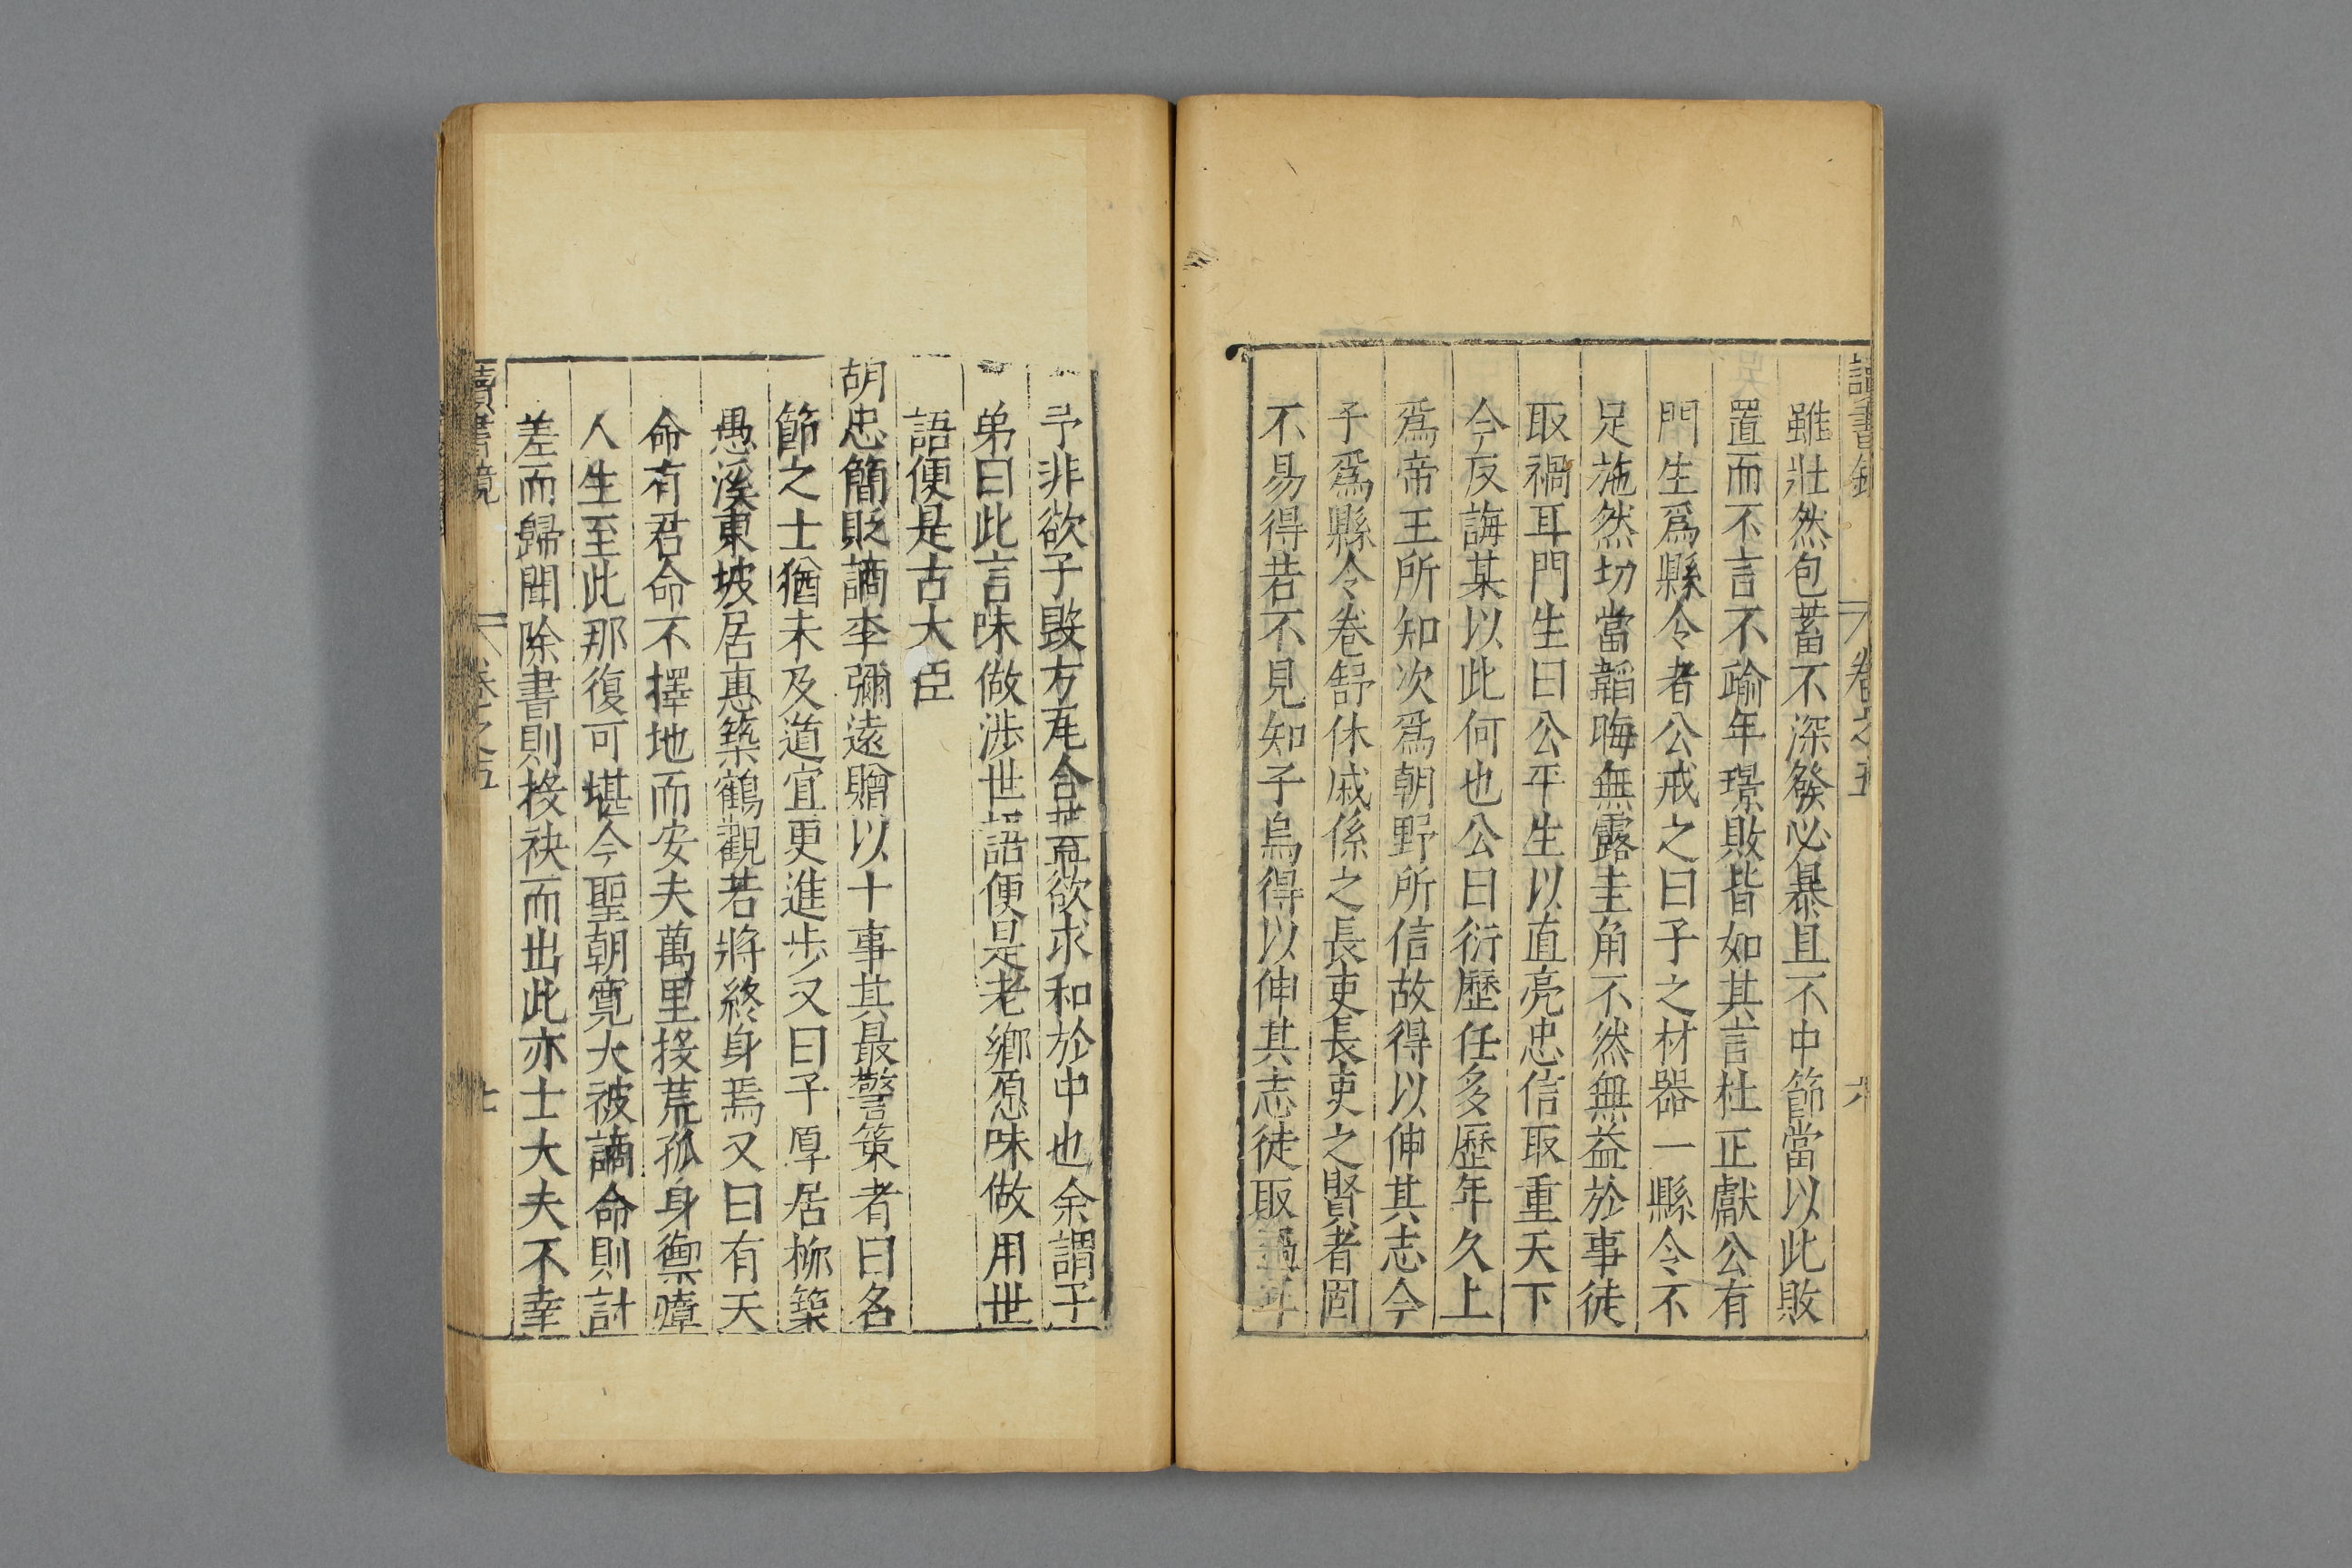 讀書鏡 卷之五 六
雖壯然包蓄不深發必暴且不中節當以此敗
置而不言不踰年璟敗皆如其言杜正獻公有
門生爲縣令者公戒之曰子之材器一縣令不
足施然切當韜晦無露圭角不然無益於事徒
取禍耳門生曰公平生以直亮忠信取重天下
今反誨某以此何也公曰衍歷任多歷年久上
爲帝王所知次爲朝野所信故得以伸其志今
子爲縣令卷舒休戚係之長吏長吏之賢者固
不易得若不見知子烏得以伸其志徒取禍耳
予非欲子毀方瓦合蓋欲求和於中也余謂子
弟曰此言味做涉世語便是老鄉愿味做用世
語便是古大臣
胡忠簡貶謫李彌遠贈以十事其最警策者曰名
節之士猶未及道宜更進步又曰子厚居柳築
愚溪東坡居惠築鶴觀若將終身焉又曰有天
命有君命不擇地而安夫萬里投荒孤身禦瘴
人生至此那復可堪今聖朝寬大被謫命則討
差而歸聞除書則投袂而出此亦士大夫不幸
讀書鏡 卷之五 七